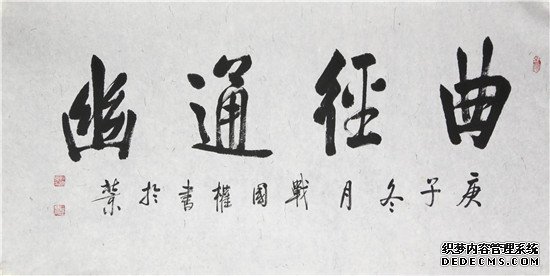 曲徑通幽
庚子冬月戰國權書於
织梦内容管理系统
DEDECMS.COM